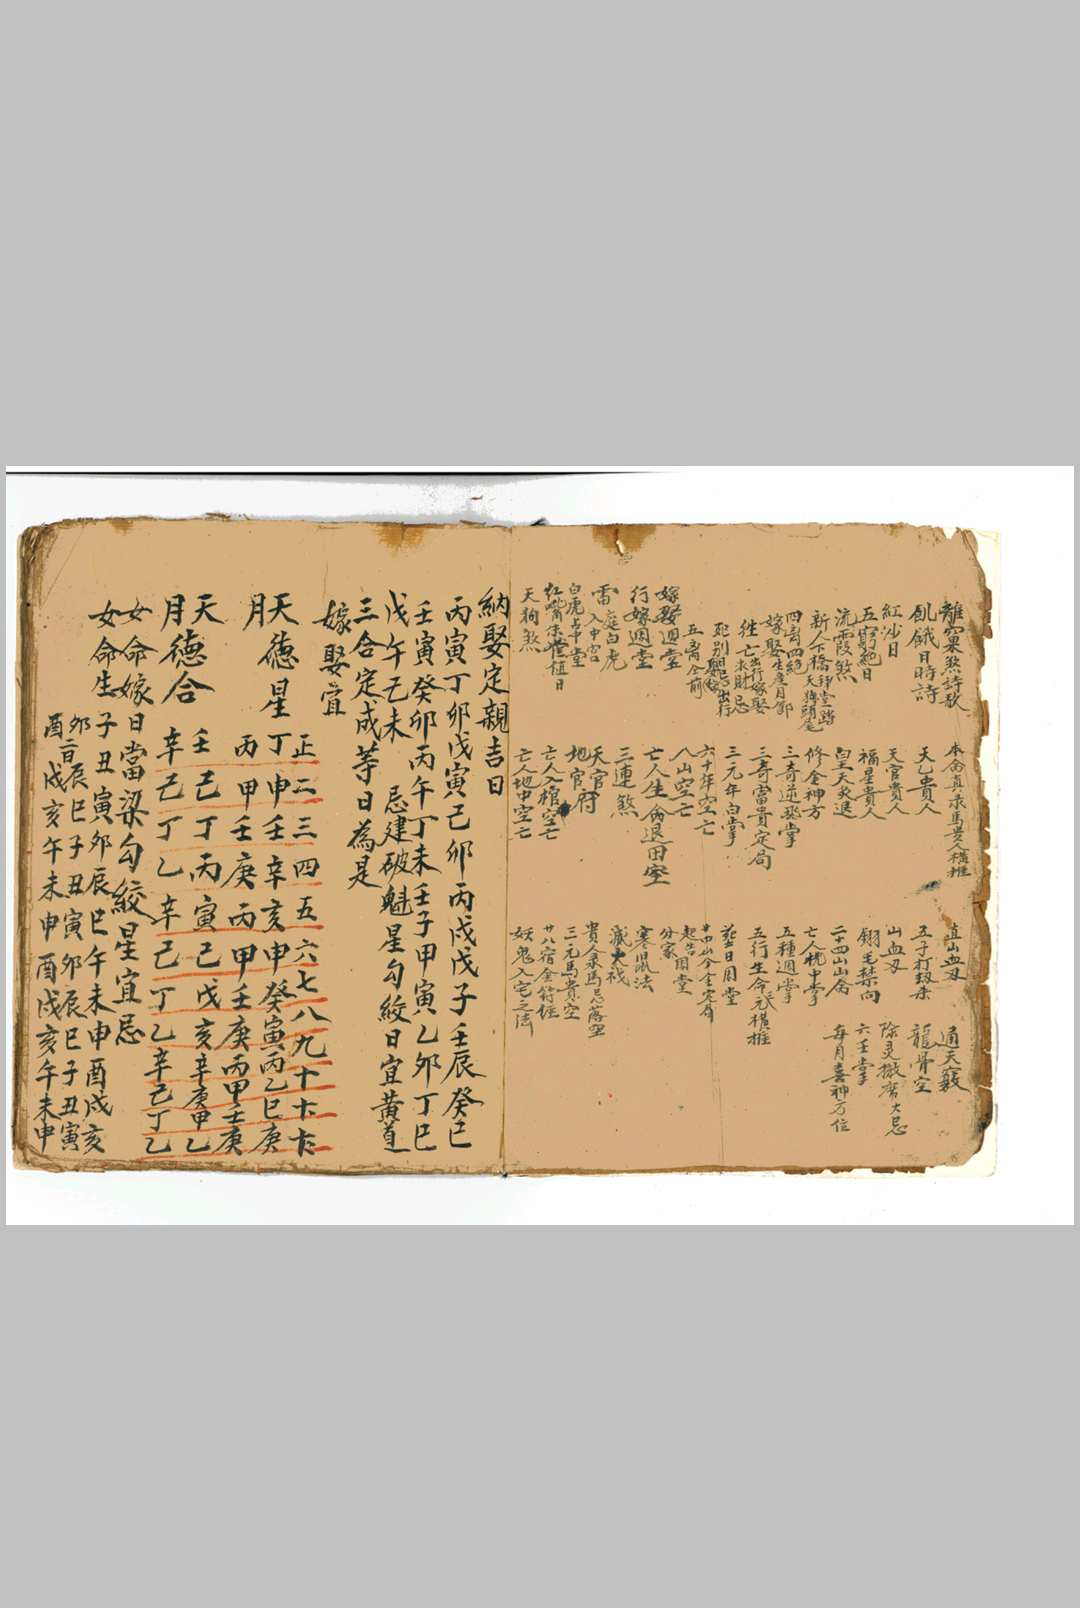 離窠煞詩歌
飢餓日時詩
紅沙日
五窮絕日
流霞煞
新人下橋拜堂踏
天狗頭尾
四離四絕
嫁娶生產月
往亡出行嫁娶求財忌
死別
出行
五离
嫁娶週堂
行嫁週堂
雷庭白虎入中宮
白虎占中堂
紅嘴朱雀值日
天狗煞
本命真祿馬貴人橫推
天乙貴人
天官貴人
福星貴人
皇天炙退
修金神方
三奇逆飛掌
三奇富貴定局
三元年白掌
六十年空亡
八山空亡
亡人生命退田室
三連煞
天官府
地官府
亡人入棺空亡
亡人地中空亡
直山血刃
五子打劫
山血刃
翎毛禁向
二十四山山命
亡人
五種週掌
五行生命祿橫推
塟日周堂
起告周堂
分家
寒鼠法
滅
貴人祿馬忌落空
三元馬貴空
廿八宿金符經
妖鬼入宅之法
通天竅
龍骨空
除灵撤席大忌
六壬掌
每月喜神方位
納娶定親吉日
丙寅丁卯戊寅己卯丙戌戊子壬辰癸巳
壬寅癸卯丙午丁未壬子甲寅乙卯丁巳
戊午己未 忌建破魁星勾絞日宜黃道
三合定成等日為是
嫁娶宜
正二三四五六七八九十
天德星 丁申壬辛亥甲癸寅丙乙巳庚
月 丙甲壬庚丙甲壬庚丙甲壬庚
天德合 壬己丁丙寅己戊亥辛庚申乙
月 辛己丁乙辛己丁乙辛己丁乙
女命嫁日當梁勾絞星宜忌
女命生子丑寅卯辰巳午未申酉戌亥
卯辰巳子丑寅卯辰巳子丑寅
酉戌亥午未申酉戌亥午未申